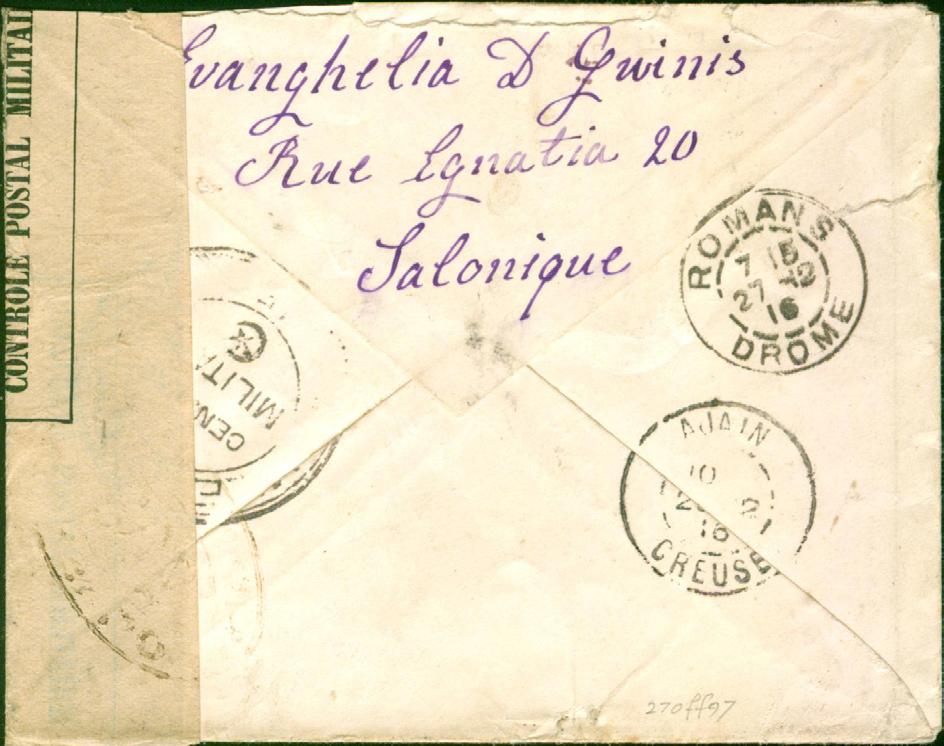 CONTROLE POSTAL MILITAI
Evanghelia D Gwinis
Rue Egnatia 20
Salonique
ROMANS
7 15
27 12
16
DROME
MILITA
CEN
AJAIN
10
16
CREUSE
270ff97